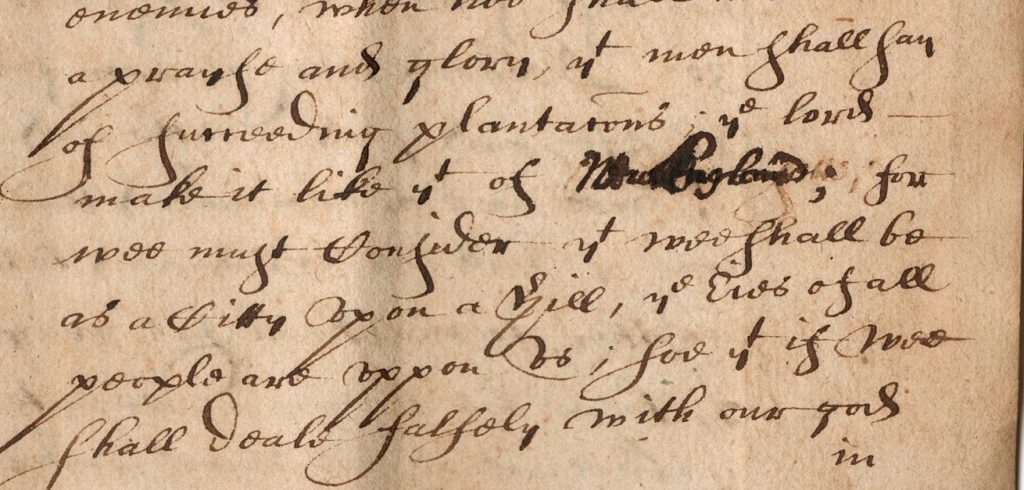 enemies, when hee shall
a prayse and glory, yt men shall say
of succeeding plantacons; ye lord
make it like yt of New England; for
wee must Consider yt wee shall be
as a Citty vpon a Hill, ye Eies of all
people are vppon vs; soe yt if wee
shall deale falsely with our god
in